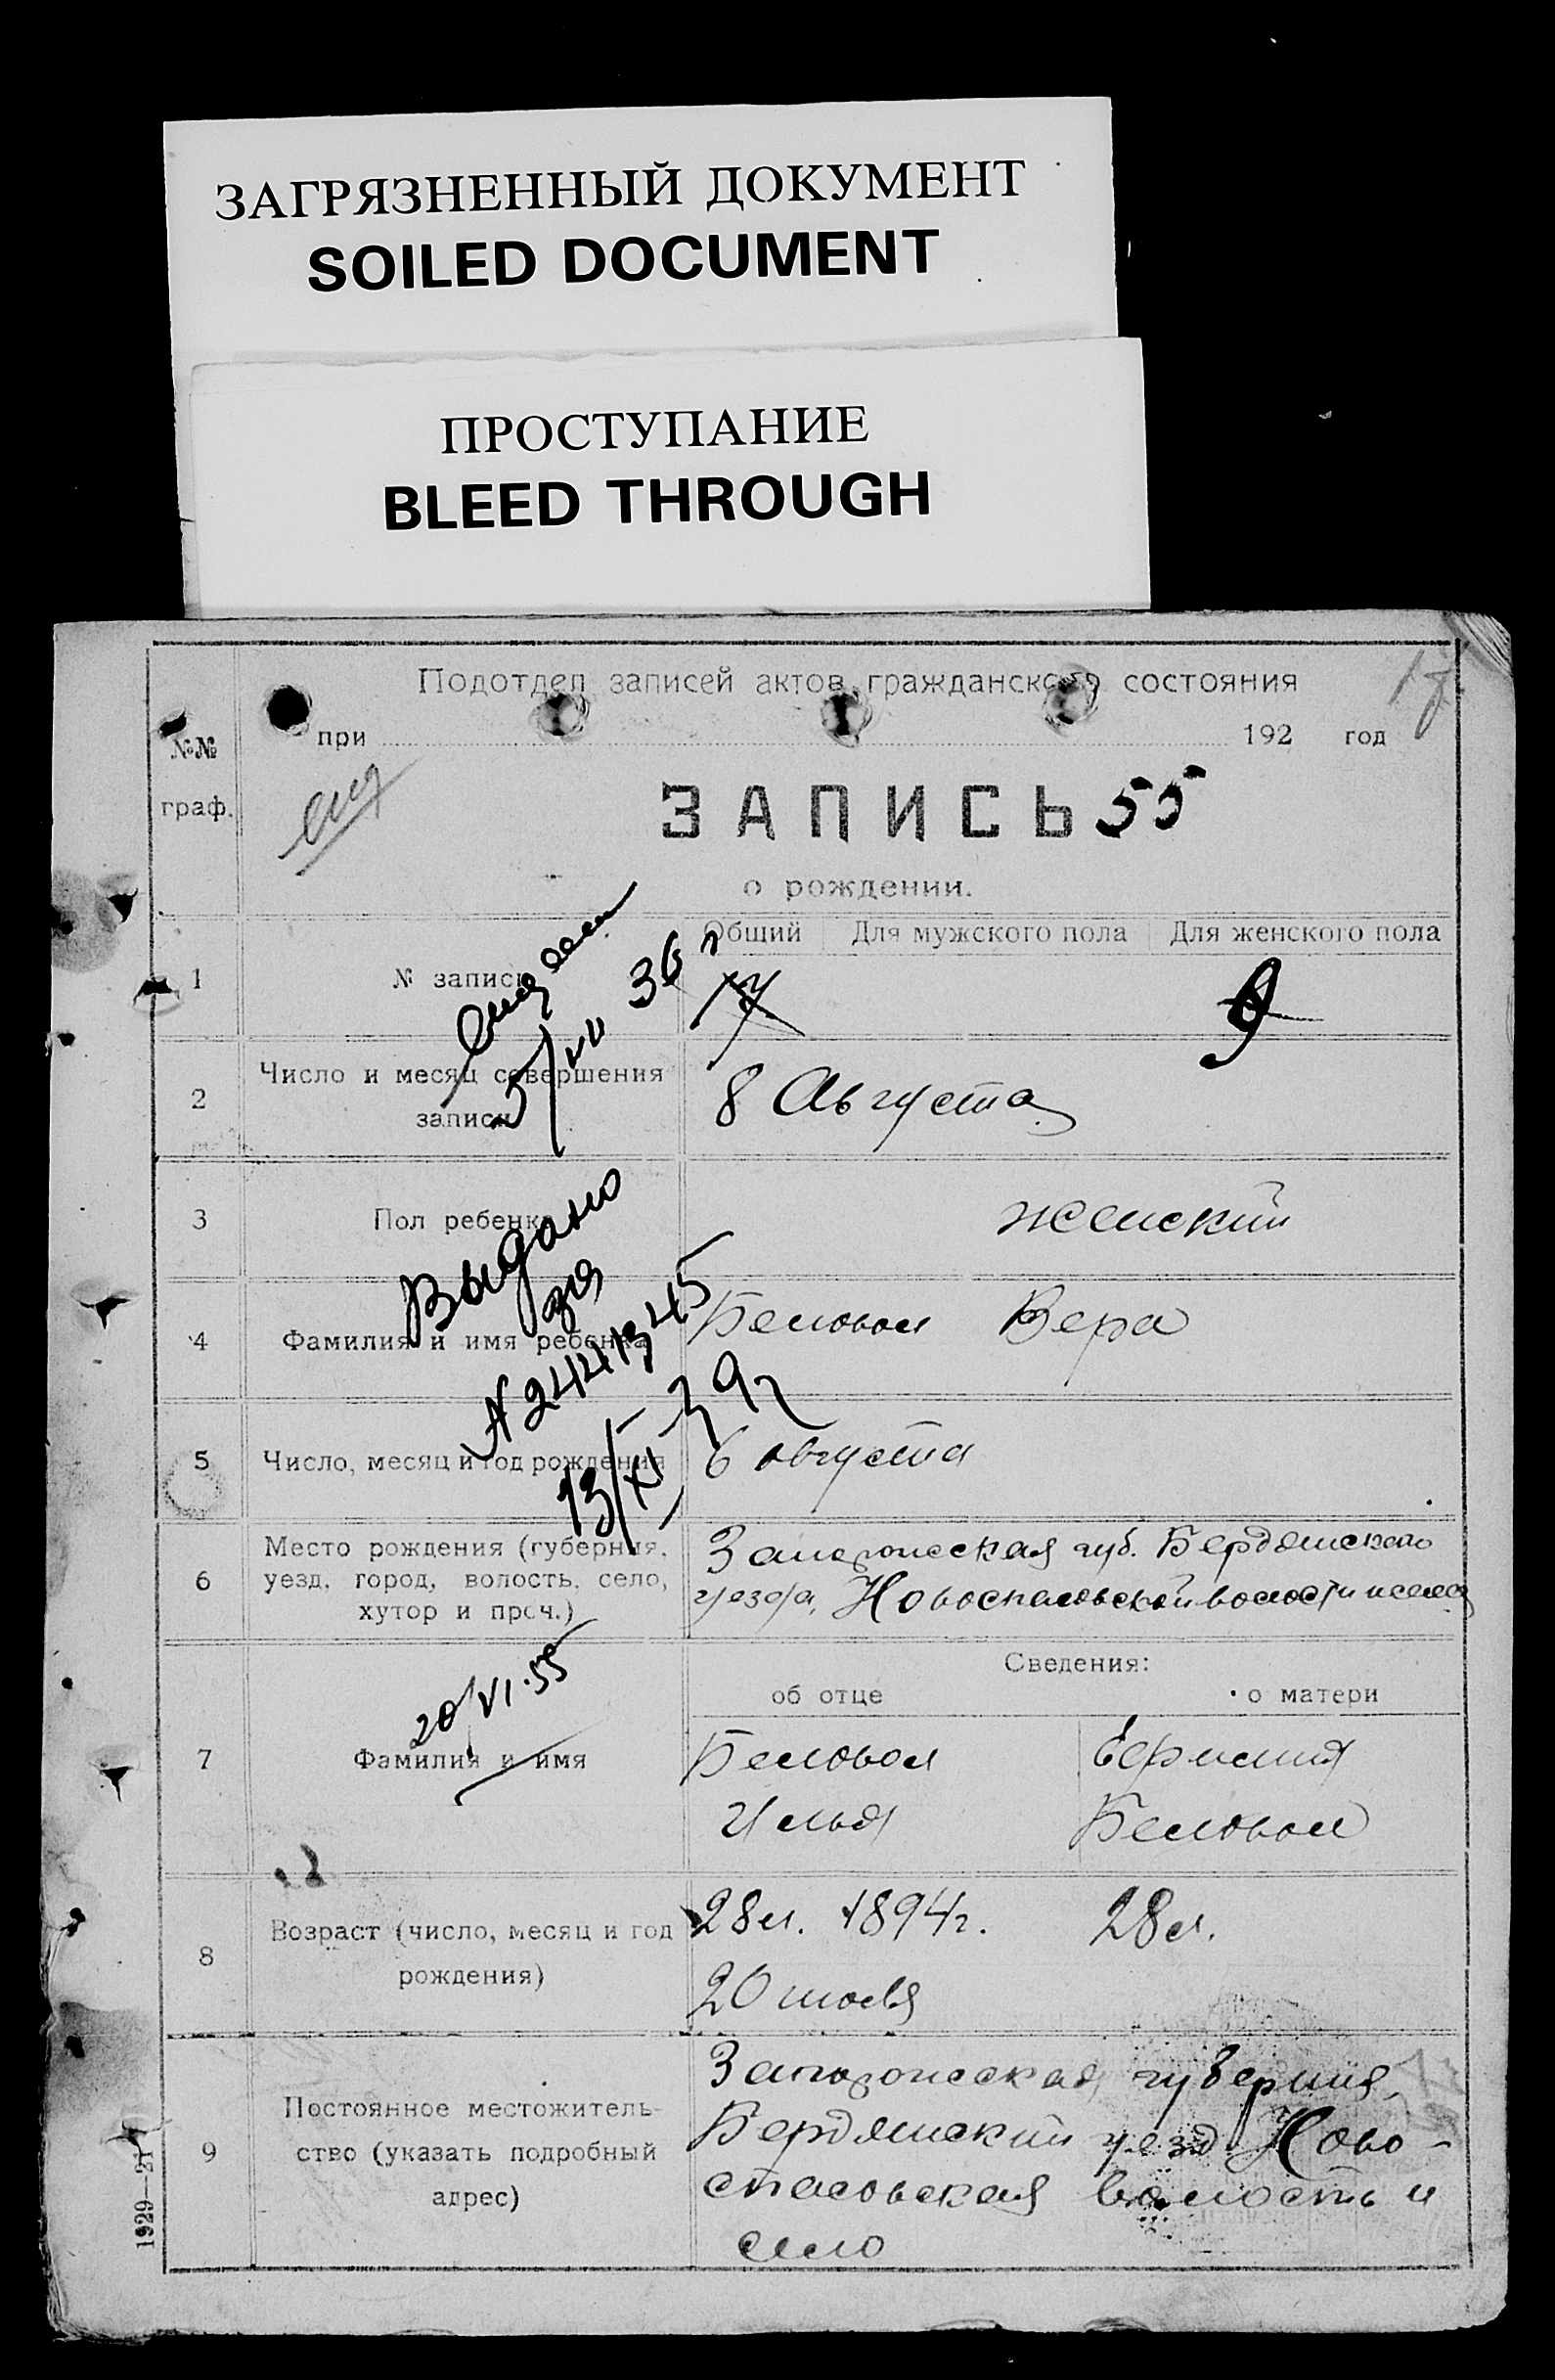 ЗАГРЯЗНЕННЫЙ ДОКУМЕНТ
SOILED DOCUMENT
ПРОСТУПАНИЕ
BLEED THROUGH
Подотдел записей актов гражданского состояния
№№ граф.
при 192 год
ЗАПИСЬ 55
о рождении.
Общий Для мужского пола Для женского пола
1 № записи 17 9
36 г
2 Число и месяц совершения записи 8 Августа
3 Пол ребенка женский
Выдано
4 Фамилия и имя ребенка Беловол Вера
13/XI 39г
5 Число, месяц и год рождения 6 августа
6 Место рождения (губерния, уезд, город, волость, село, хутор и проч.)
Запорожская губ. Бердянского
уезда, Новоспасовской волости и села
Сведения:
об отце о матери
20/VI.55
7 Фамилия и имя
Беловол
Илья
Беловол
8 Возраст (число, месяц и год рождения)
28 л. 1894 г. 28 л.
20
9 Постоянное местожительство (указать подробный адрес)
Запорожская губерния,
Бердянский уезд Ново-
спасовская волость и
село
1929—21